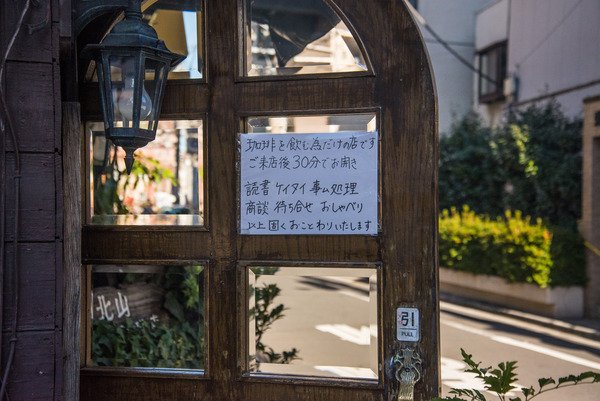 珈琲を飲む為だけの店です
ご来店後30分でお開き
読書 ケイタイ 事ム処理
商談 待ち合せ おしゃべり
以上固くおことわりいたします
北山
引
PULL